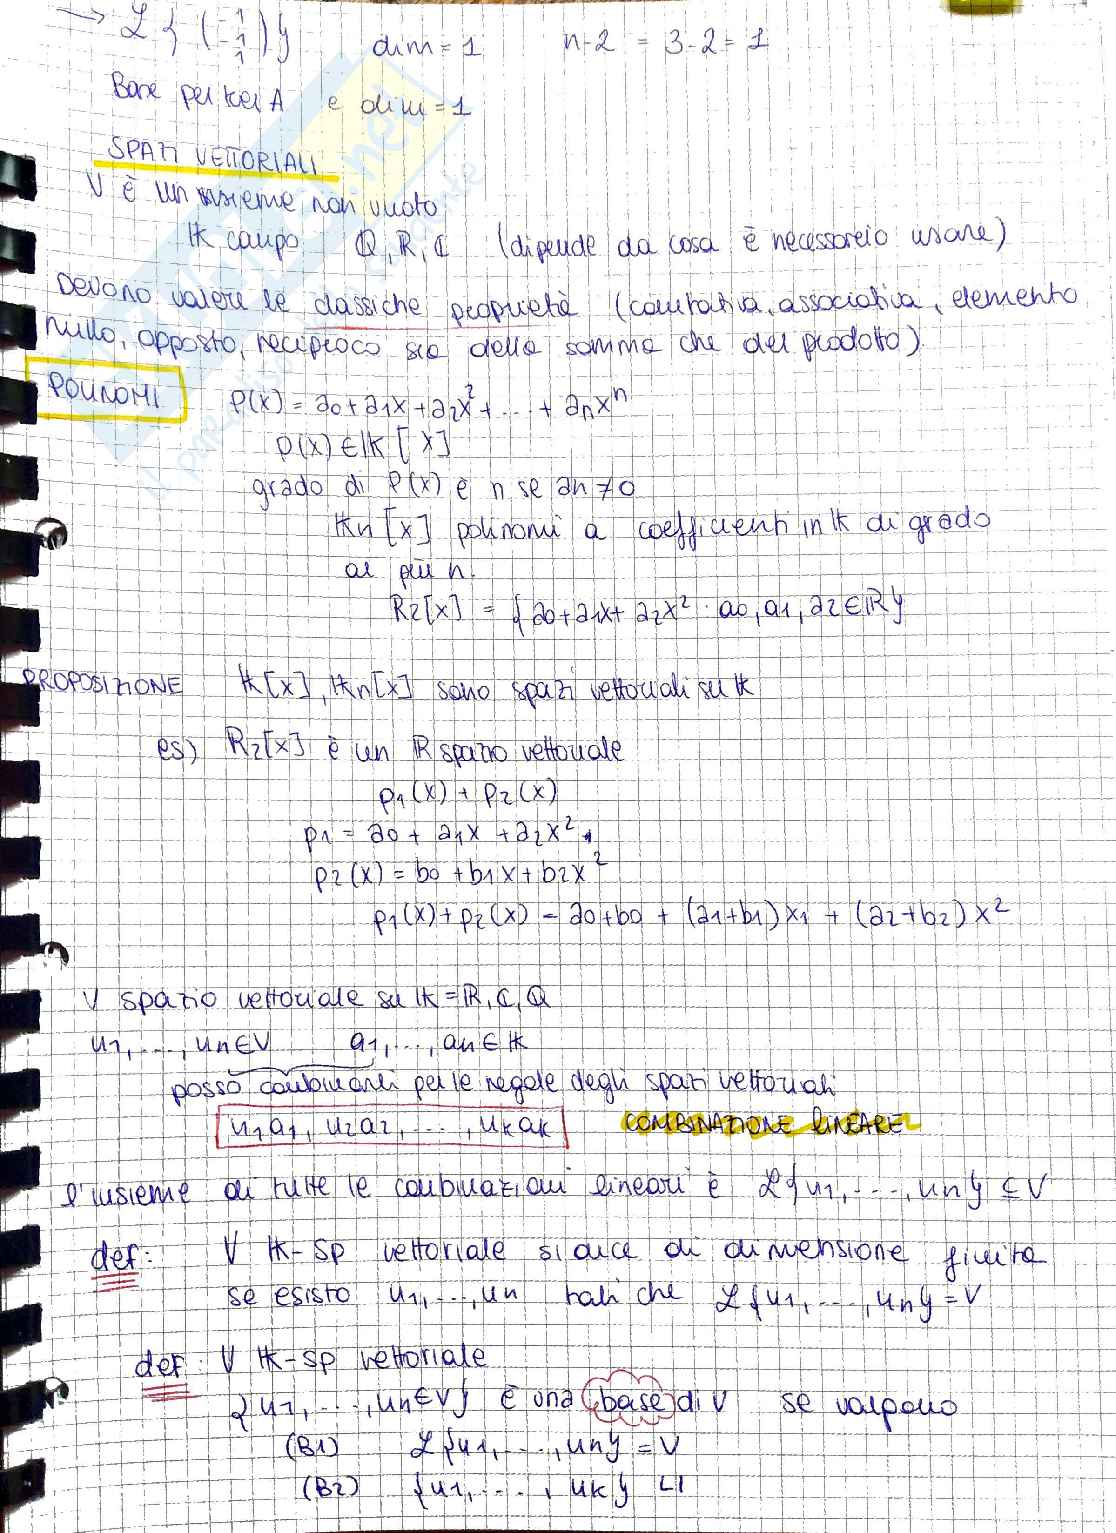 → L { (-1 1 1) } dim = 1 n-2 = 3-2 = 1
Base per ker A e dim = 1
SPAZI VETTORIALI
V è un insieme non vuoto
K campo Q, R, C (dipende da cosa è necessario usare)
Devono valere le classiche proprietà (comutativa, associativa, elemento
nullo, opposto, reciproco sia della somma che del prodotto).
POLINOMI P(x) = a0 + a1x + a2x² + ... + anxⁿ
p(x) ∈ K [x]
grado di P(x) è n se an ≠ 0
Kn [x] polinomi a coefficienti in K di grado
al più n.
R2[x] = { a0 + a1x + a2x² : a0, a1, a2 ∈ R }
PROPOSIZIONE K[x], Kn[x] sono spazi vettoriali su K
es) R2[x] è un R spazio vettoriale
p1(x) + p2(x)
p1 = a0 + a1x + a2x²
p2(x) = b0 + b1x + b2x²
p1(x) + p2(x) = a0+b0 + (a1+b1)x1 + (a2+b2)x²
V spazio vettoriale su K = R, C, Q
u1, ..., un ∈ V a1, ..., an ∈ K
posso combinarli per le regole degli spazi vettoriali
u1a1, u2a2, ..., ukak COMBINAZIONE LINEARE
l'insieme di tutte le combinazioni lineari è L{u1, ..., un} ⊆ V
def: V K-sp vettoriale si dice di dimensione finita
se esisto u1, ..., un tali che L{u1, ..., un} = V
def: V K-sp vettoriale
{u1, ..., un ∈ V} è una base di V se valgono
(B1) L{u1, ..., un} = V
(B2) {u1, ..., uk} LI